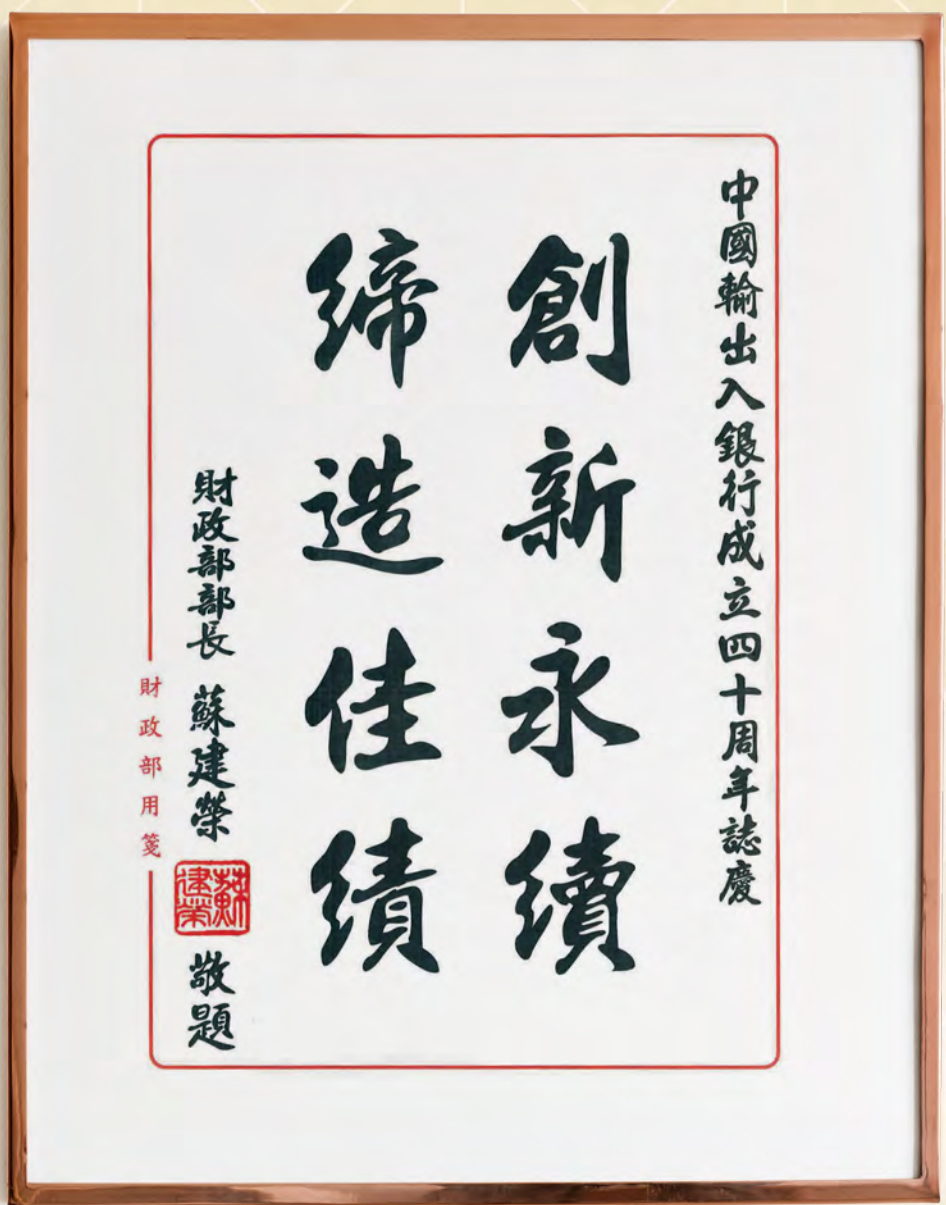 中國輸出入銀行成立四十周年誌慶
創新永續
締造佳績
財政部部長 蘇建榮 蘇建榮 敬題
財政部用箋